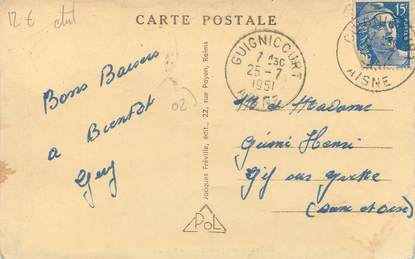 12 €
CARTE POSTALE
15F
GUIGNICOURT
7 H30
25-7
1951
AISNE
AISNE
Bons Baisers
a Bientôt
Guy
02)
Jacques Fréville, édit., 22, rue Payen, Reims
PoL
Mr et Madame
Henri
Gif sur Yvette
(Seine et Oise)